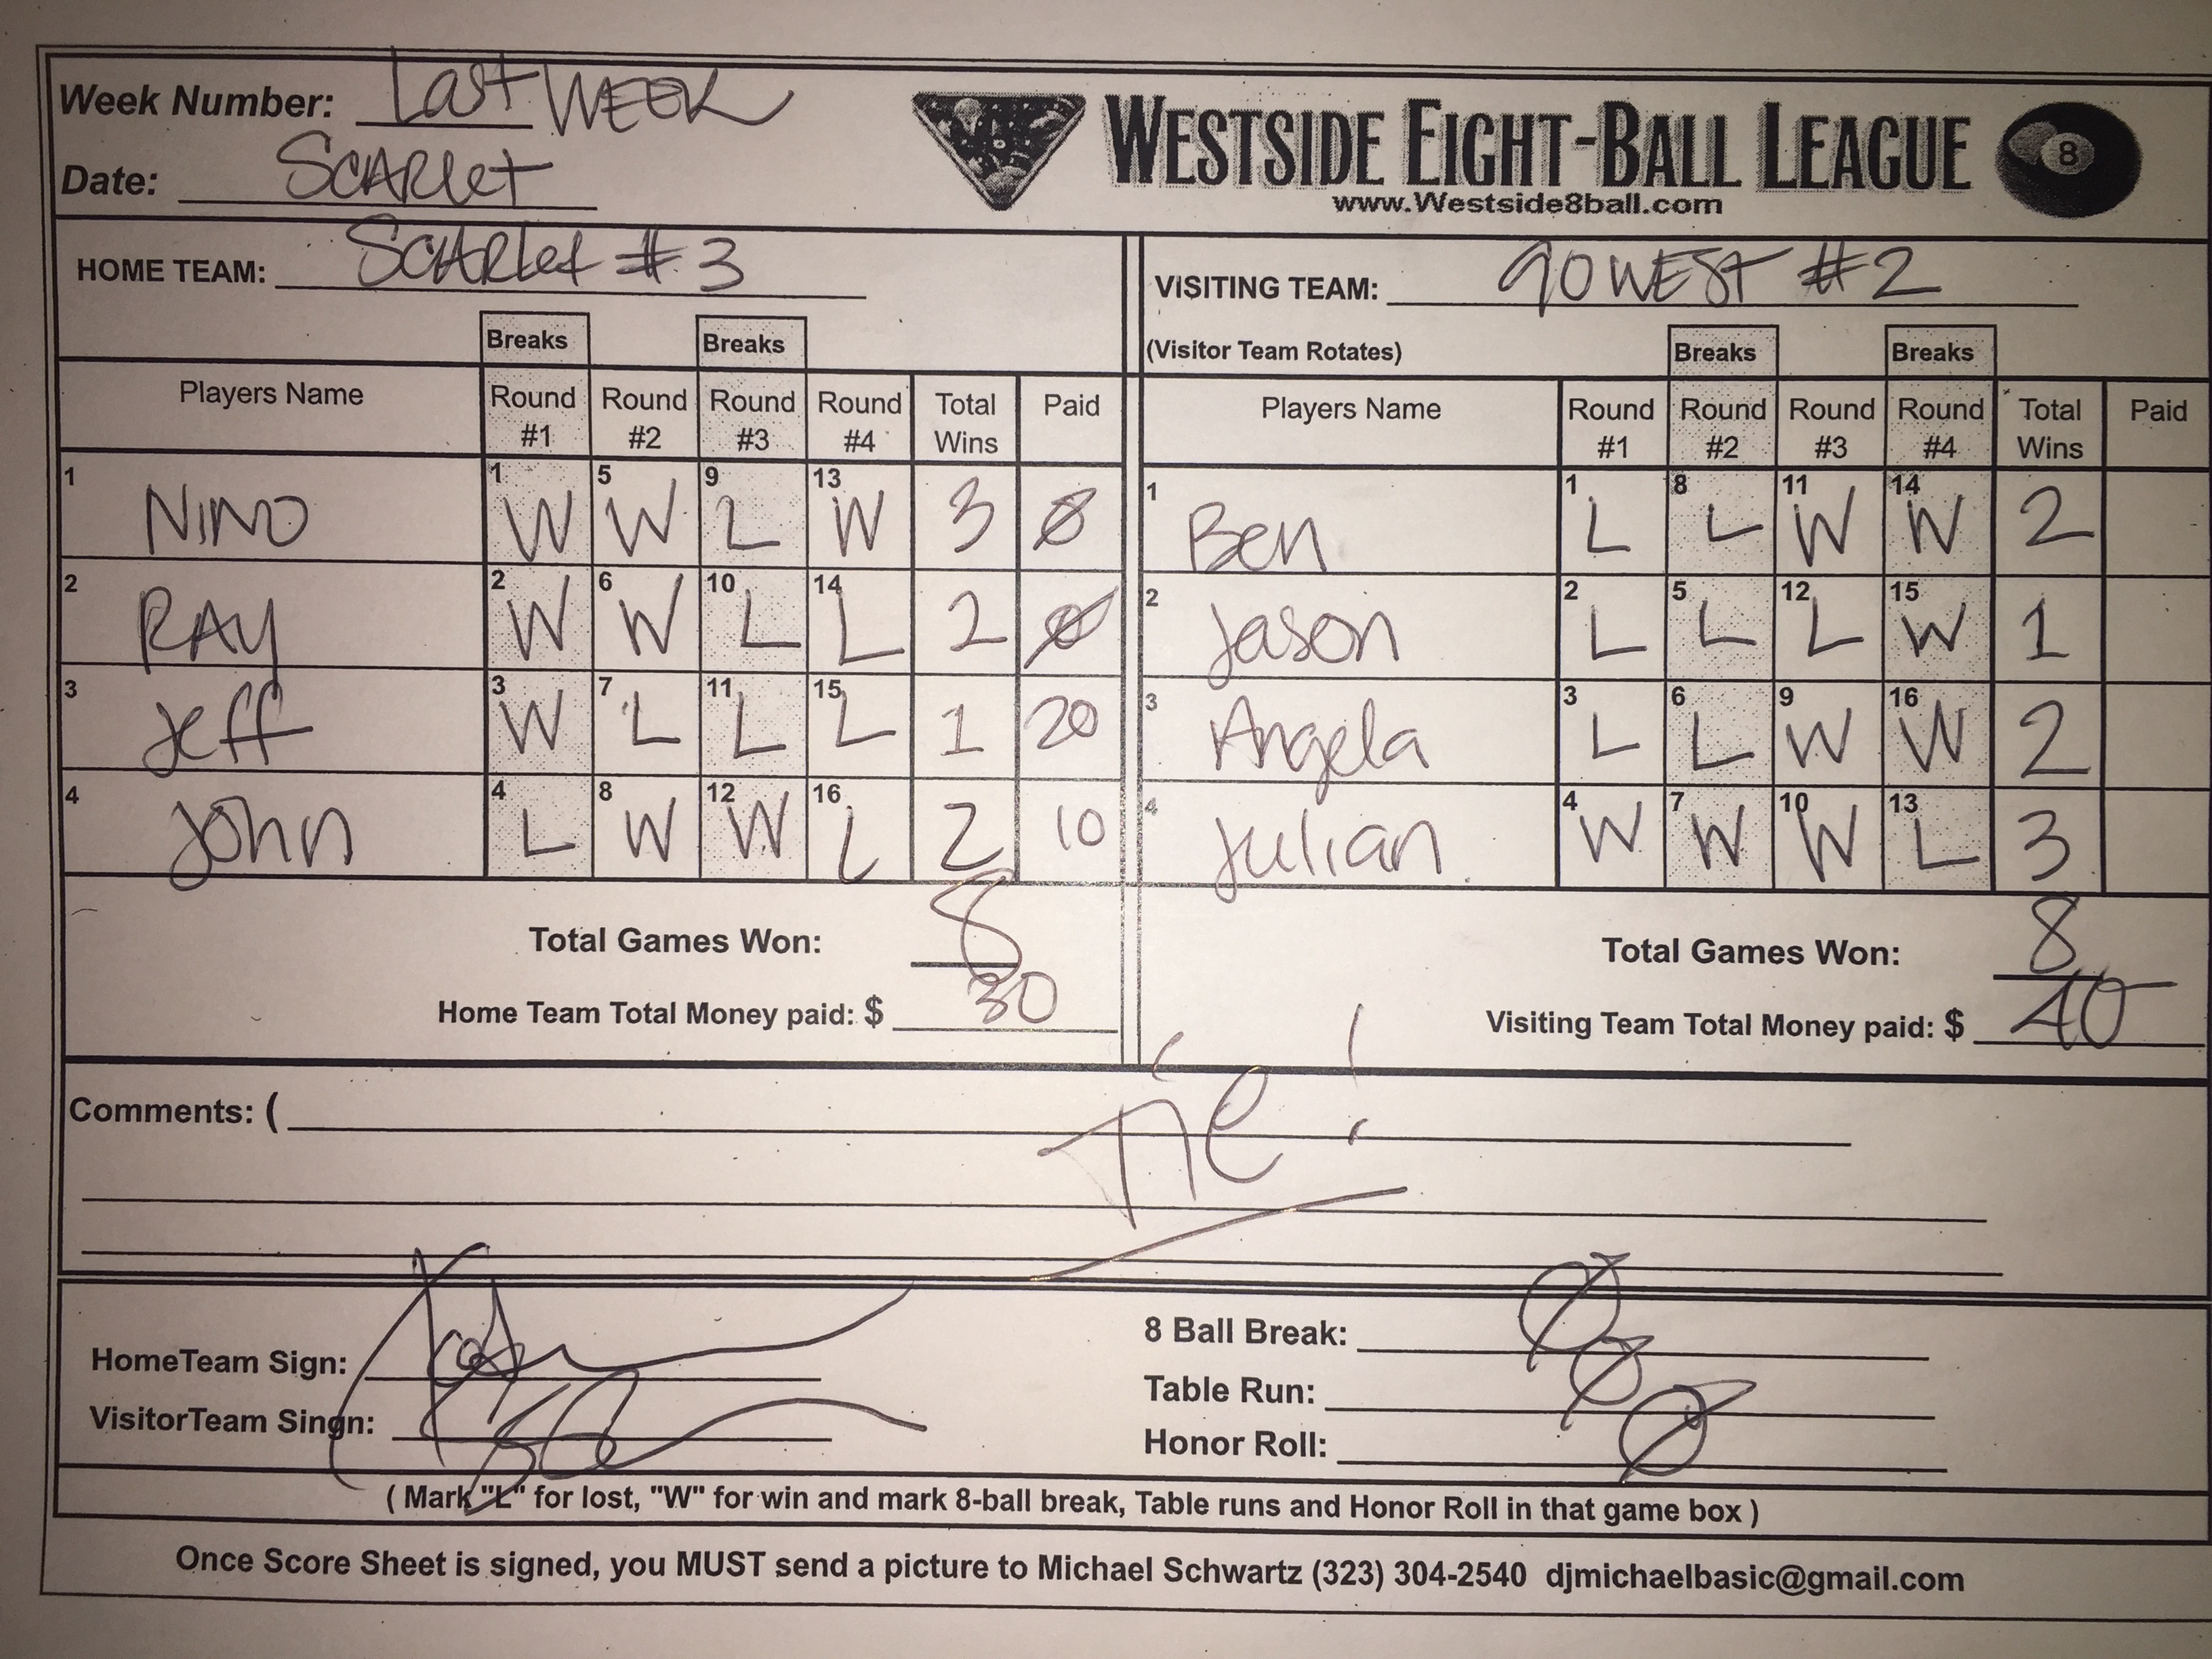 Week Number: Last WEEK
Date: SCARlet
WESTSIDE EIGHT-BALL LEAGUE 8
www.Westside8ball.com
HOME TEAM: SCARlet #3
VISITING TEAM: 90 WEST #2
(Visitor Team Rotates)
Breaks Breaks Breaks Breaks
Players Name Round #1 Round #2 Round #3 Round #4 Total Wins Paid Players Name Round #1 Round #2 Round #3 Round #4 Total Wins Paid
1 NINO 1 W 5 W 9 L 13 W 3 Ø 1 Ben 1 L 8 L 11 W 14 W 2
2 RAY 2 W 6 W 10 L 14 L 2 Ø 2 Jason 2 L 5 L 12 L 15 W 1
3 Jeff 3 W 7 L 11 L 15 L 1 20 3 Angela 3 L 6 L 9 W 16 W 2
4 John 4 L 8 W 12 W 16 L 2 10 4 Julian 4 W 7 W 10 W 13 L 3
Total Games Won: 8 Total Games Won: 8
Home Team Total Money paid: $ 30 Visiting Team Total Money paid: $ 40
Comments: (
Tie!
HomeTeam Sign:
VisitorTeam Singn:
8 Ball Break: Ø
Table Run: Ø
Honor Roll: Ø
( Mark "L" for lost, "W" for win and mark 8-ball break, Table runs and Honor Roll in that game box )
Once Score Sheet is signed, you MUST send a picture to Michael Schwartz (323) 304-2540 djmichaelbasic@gmail.com